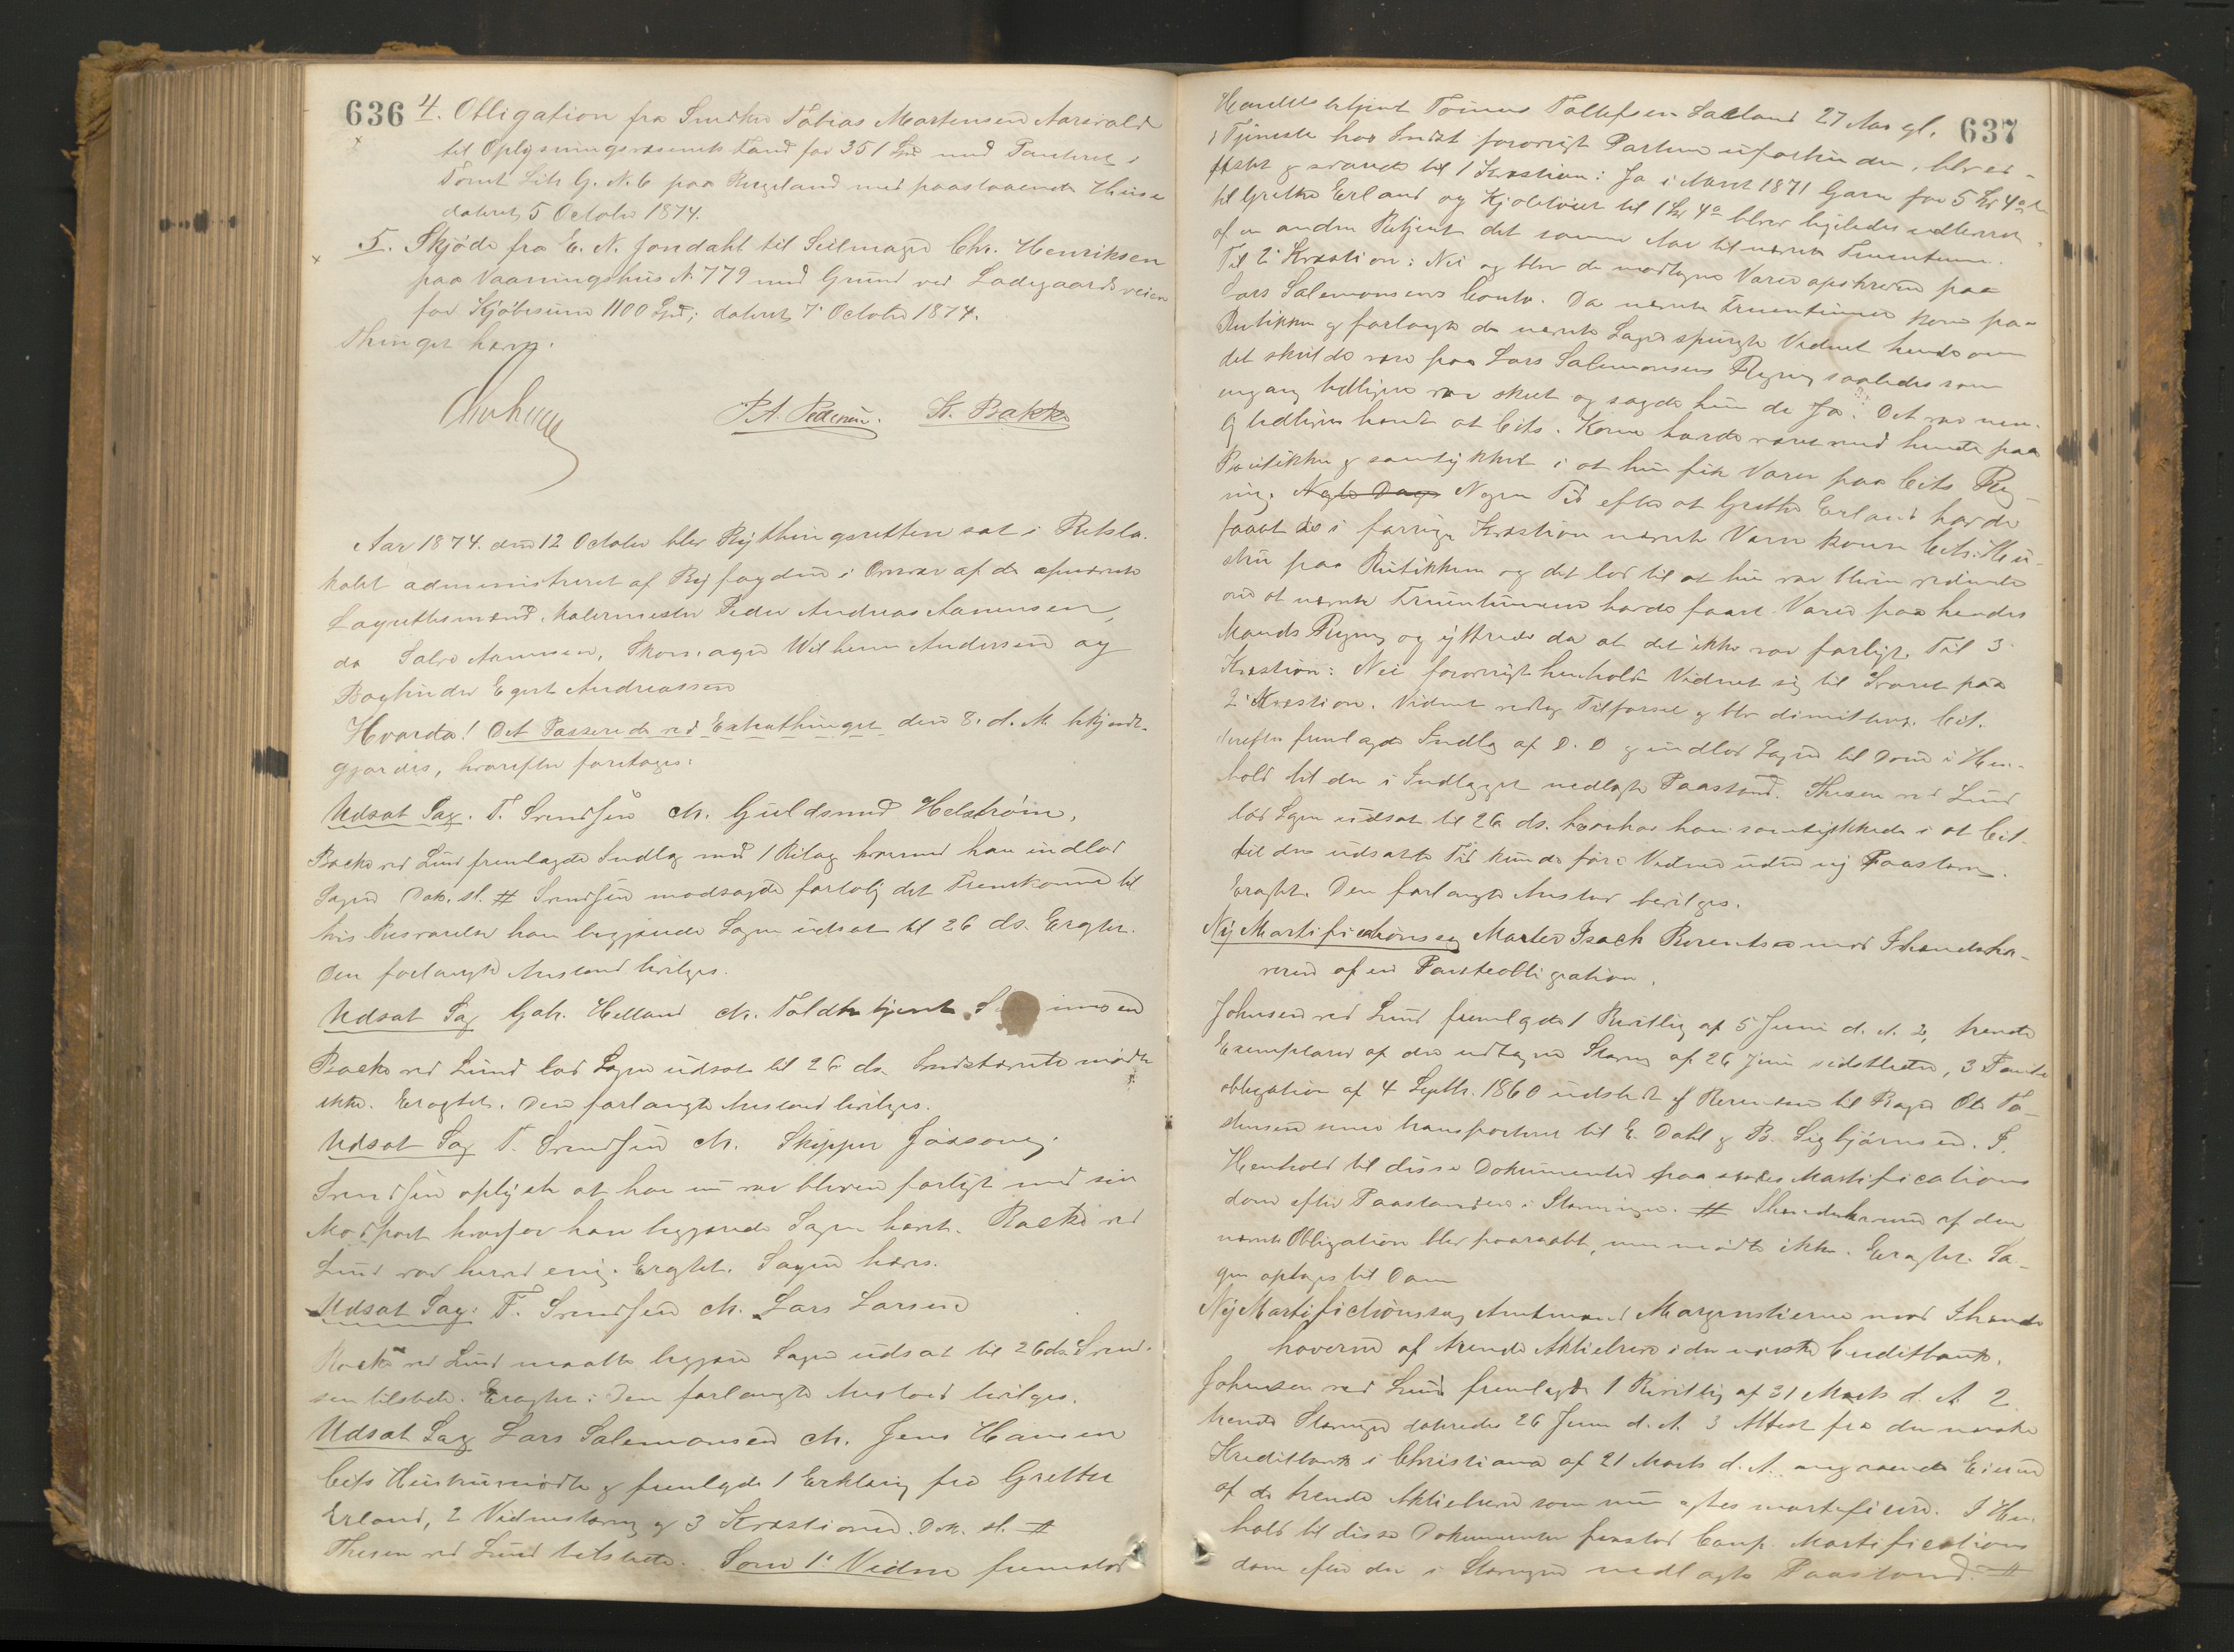 636
4. Obligation fra Smedkr Tobias Martensen Aarsvold
til Oplysningsvæsenets Fand for 351 Spd med Panteret i
Tomt Litr G. N. 6 paa Rugeland med paastaaende Huse
dateret 5 October 1874.
5. Skjøde fra E. N. Jondahl til Seilmager Chr. Henriksen
paa Vaaningshus N 779 med Grund ved Ladegaardsveien
for Kjøbesum 1100 Spd; dateret 7' October 1874.
Thinget hævet.
P. A. Pedersen. St. Bakke
Aar 1874. den 12 October blev Bythingsretten sat i Retslo-
kalet administreret af Byfogden i Overvær af de opnævnte
Lagrettesmænd, Malermester Peder Andreas Aanensen,
do Salve Aanensen, Skomager Wilhelm Andersen og
Bogbinder Egert Andreassen
Hvorda! Det Passerede ved Extrathinget den 8. d. M. bekjendt-
gjordes, hvorefter foretoges:
Udsat Sag. T. Svendsen ctr. Guldsmed Helstrøm.
Backe ved Lund fremlagde Indlæg med 1 Bilag hvormed han indlod
Sagen Dok. sl. # Svendsen modsagde forløbig det Fremkomne til
hvis Besvarelse han begjærede Sagen udsat til 26 ds. Eragtet.
Den forlangte Anstand bevilges.
Udsat Sag Gab. Helland ctr. Toldbetjent
Backe ved Lund lod Sagen udsat til 26 ds. Indstævnte mødte
ikke. Eragtet. Den forlangte Anstand bevilges.
Udsat Sag T. Svendsen ctr. Skipper Jossong.
Svendsen oplyste at han nu var bleven forligt med sin
Modpart hvorfor han begjærede Sagen hævet. Backe ved
Lund var herved enig. Eragtet. Sagen hæves.
Udsat Sag: T. Svendsen ctr. Lars Larsen
Backe ved Lund maatte begjære Sagen udsat til 26 ds. Svend-
sen tilstede. Eragtet: Den forlangte Anstand bevilges.
Udsat Sag Lars Salemonsen ctr. Jens Hansen
Cits Hustru mødte & fremlagde 1 Erklæring fra Grethe
Erland, 2 Vidnestævning & 3 Kvæstioner. Dok. sl. #
Thesen ved Lund tilstede. Som 1' Vidne fremstod
637
Handelsbetjent Tønnes Tollefsen Salland 27 Aar gl.
i Tjeneste hos Indst forøvrigt Parterne uforbunden, blev ed-
fæstet & svarede til 1 Kvæstion: Ja i Marts 1871 Garn for
til Grethe Erland og Kjoletøiet til blev ligeledes udleveret
af en anden Betjent det samme Aar til nævnte Fruentimmer.
Til 2' Kvæstion: Nei og blev de modtagne Varer opskrevne paa
Lars Salemonsens Conto. Da nævnte Fruentimmer kom paa
Butikken & forlangte de nævnte Sager spurgte Vidnet hende om
det skulde være paa Lars Salemonsens Regning saaledes som
engang tidligere var skeet og sagde hun da Ja. Det var nem-
lig tidligere hændt at Cits. Kone havde været med hende paa
Boutikken & samtykket i at hun fik Varer paa Cits Reg-
ning. Nogle Dage Nogen Tid efter at Grethe Erland havde
faaet de i forrige Kvæstion nævnte Varer kom Cits. Hu-
stru paa Butikken og det lod til at hun var bleven vidende
om at nævnte Fruentimmer havde faaet Varer paa hendes
Mands Regning og yttrede da at det ikke var farligt. Til 3'
Kvæstion: Nei forøvrigt henholdt Vidnet sig til Svaret paa
2' Kvæstion. Vidnet vedtog Tilførsel & blev dimitteret. Cit.
derefter fremlagde Indlæg af D. D & indlod Sagen til Dom i Hen-
hold til den i Indlægget nedlagte Paastand. Thesen ved Lund
lod Sagen udsat til 26 ds. hvorhos han samtykkede i at Cit.
til den udsatte Tid kunde føre Vidner uden ny
Eragtet. Den forlangte Anstand bevilges.
Ny Mortifications sag Murler Isach Berentsen mod Ihændeha-
veren af en Panteobligation.
Johnsen ved Lund fremlagde 1 Bevilling af 5 Juni d. A. 2, trende
Exemplarer af den udtagne Stævning af 26 Juni sidstleden, 3 Pante
obligation af 4 Septbr. 1860 udstedt af Berentsen til Bager Ole To-
stensen senere transporteret til E. Dahl & B. Sigbjørnsen. I
Henhold til disse Dokumenter paastodes Mortifications
dom efter Paastanden i Stævningen. # Ihændehaveren af den
nævnte Obligation blev paaraabt, men mødte ikke. Eragtet. Sa-
gen optages til Dom
Ny Mortifictionssag Amtmand Morgenstierne mod Ihænde
haveren af trende Aktiebreve i den norske Creditbank.
Johnsen ved Lund fremlagde 1 Bevilling af 31 Marts d. A. 2
trende Stævninger daterede 26 Juni d. A. 3 Attest fra den norske
Kreditbank i Christiania af 21 Marts d. A. angaaende Eieren
af de trende Aktiebreve som nu agtes mortificeret. I Hen-
hold til disse Dokumenter paastod Comp. Mortifications
dom efter den i Stævningen nedlagte Paastand. #